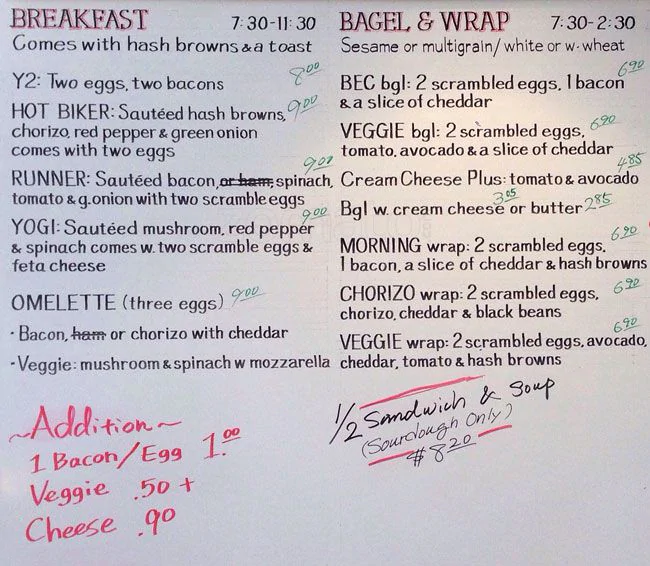 BREAKFAST 7:30-11:30
Comes with hash browns & a toast
Y2: Two eggs, two bacons 8.00
HOT BIKER: Sautéed hash browns, 9.00
chorizo, red pepper & green onion
comes with two eggs
9.00
RUNNER: Sautéed bacon, or ham, spinach,
tomato & g.onion with two scramble eggs
9.00
YOGI: Sautéed mushroom, red pepper
& spinach comes w. two scramble eggs &
feta cheese
OMELETTE (three eggs) 9.00
· Bacon, ham or chorizo with cheddar
· Veggie: mushroom & spinach w mozzarella
~Addition~
1 Bacon/Egg 1.00
Veggie .50 +
Cheese .90
BAGEL & WRAP 7:30-2:30
Sesame or multigrain/ white or w. wheat
6.90
BEC bgl: 2 scrambled eggs, 1 bacon
& a slice of cheddar
VEGGIE bgl: 2 scrambled eggs, 6.90
tomato, avocado & a slice of cheddar
4.85
Cream Cheese Plus: tomato & avocado
Bgl w. cream cheese 3.05 or butter 2.85
6.90
MORNING wrap: 2 scrambled eggs,
1 bacon, a slice of cheddar & hash browns
CHORIZO wrap: 2 scrambled eggs, 6.90
chorizo, cheddar & black beans
6.90
VEGGIE wrap: 2 scrambled eggs, avocado,
cheddar, tomato & hash browns
1/2 Sandwich & Soup
(Sourdough Only)
$8.20